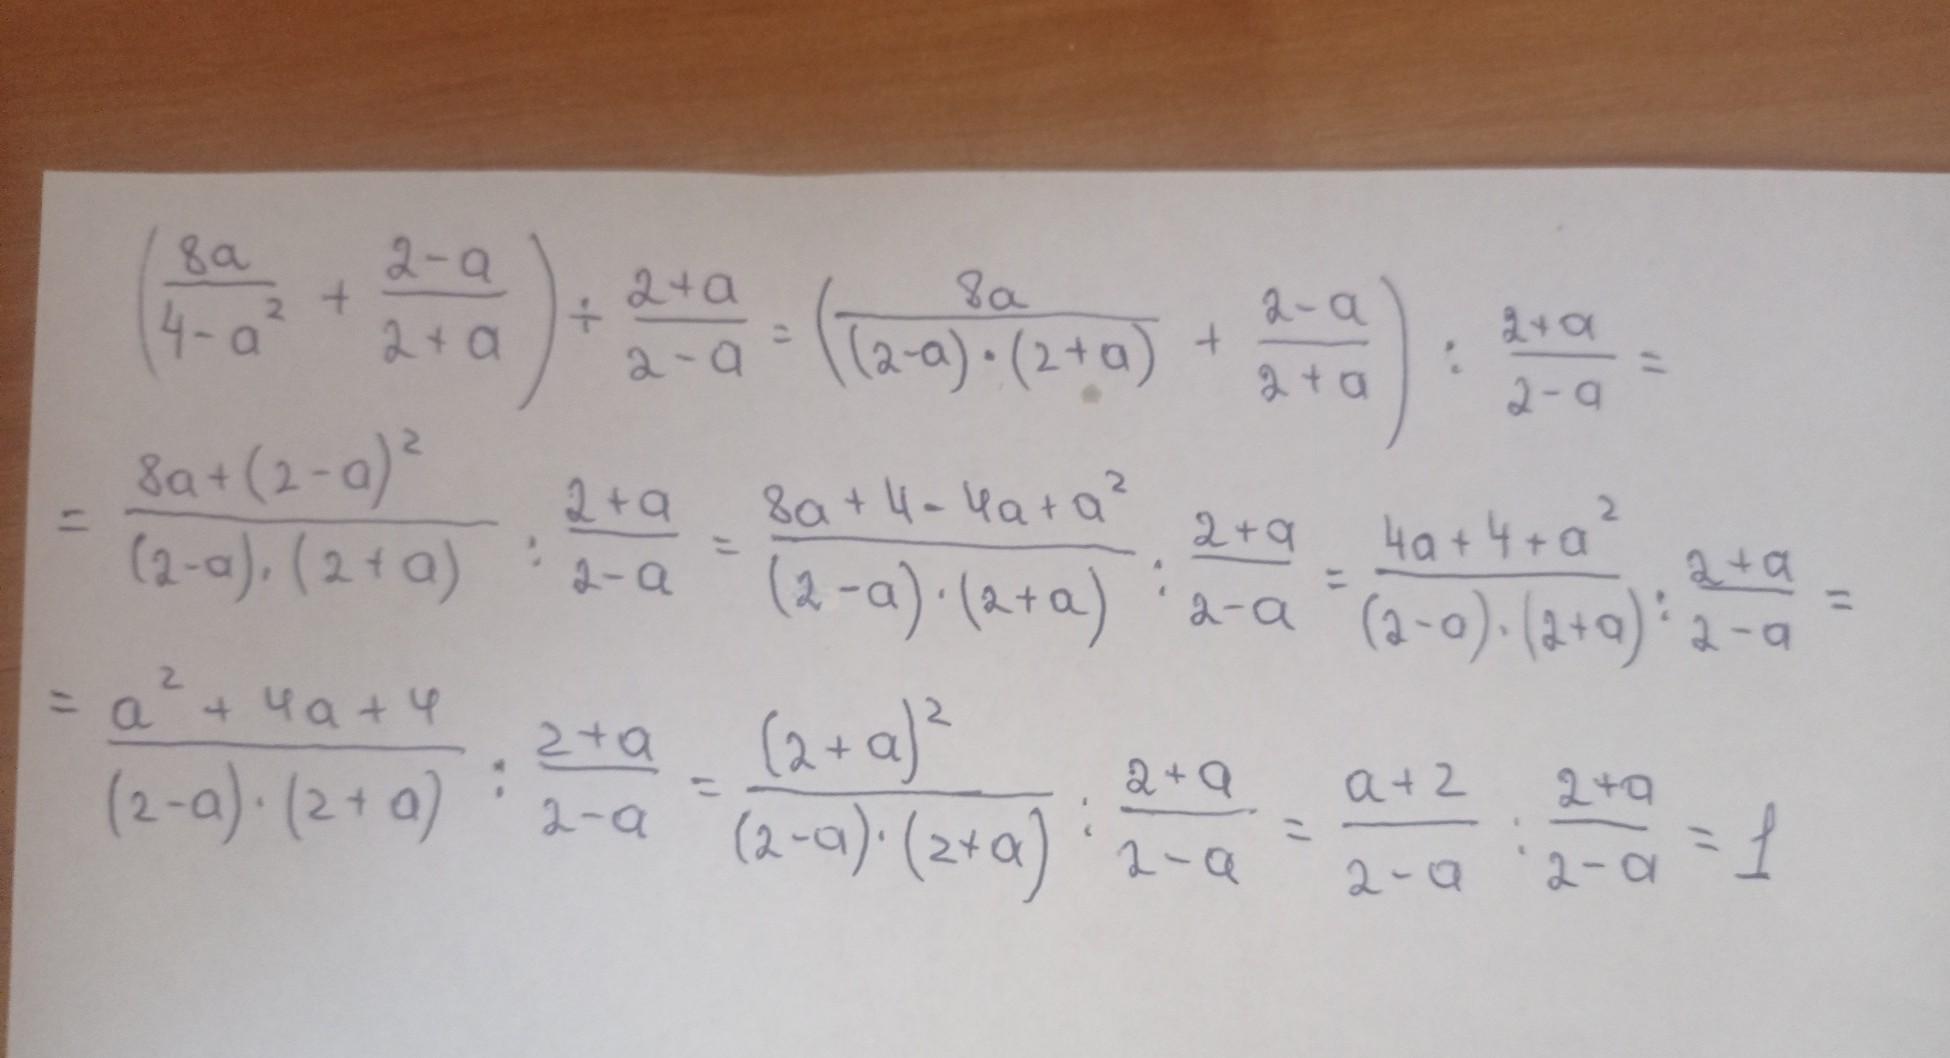 (8a/(4-a²) + (2-a)/(2+a)) ÷ (2+a)/(2-a) = (8a/((2-a)·(2+a)) + (2-a)/(2+a)) : (2+a)/(2-a) =
= (8a+(2-a)²)/((2-a)·(2+a)) : (2+a)/(2-a) = (8a+4-4a+a²)/((2-a)·(2+a)) : (2+a)/(2-a) = (4a+4+a²)/((2-a)·(2+a)) : (2+a)/(2-a) =
= (a²+4a+4)/((2-a)·(2+a)) : (2+a)/(2-a) = (2+a)²/((2-a)·(2+a)) : (2+a)/(2-a) = (a+2)/(2-a) : (2+a)/(2-a) = 1